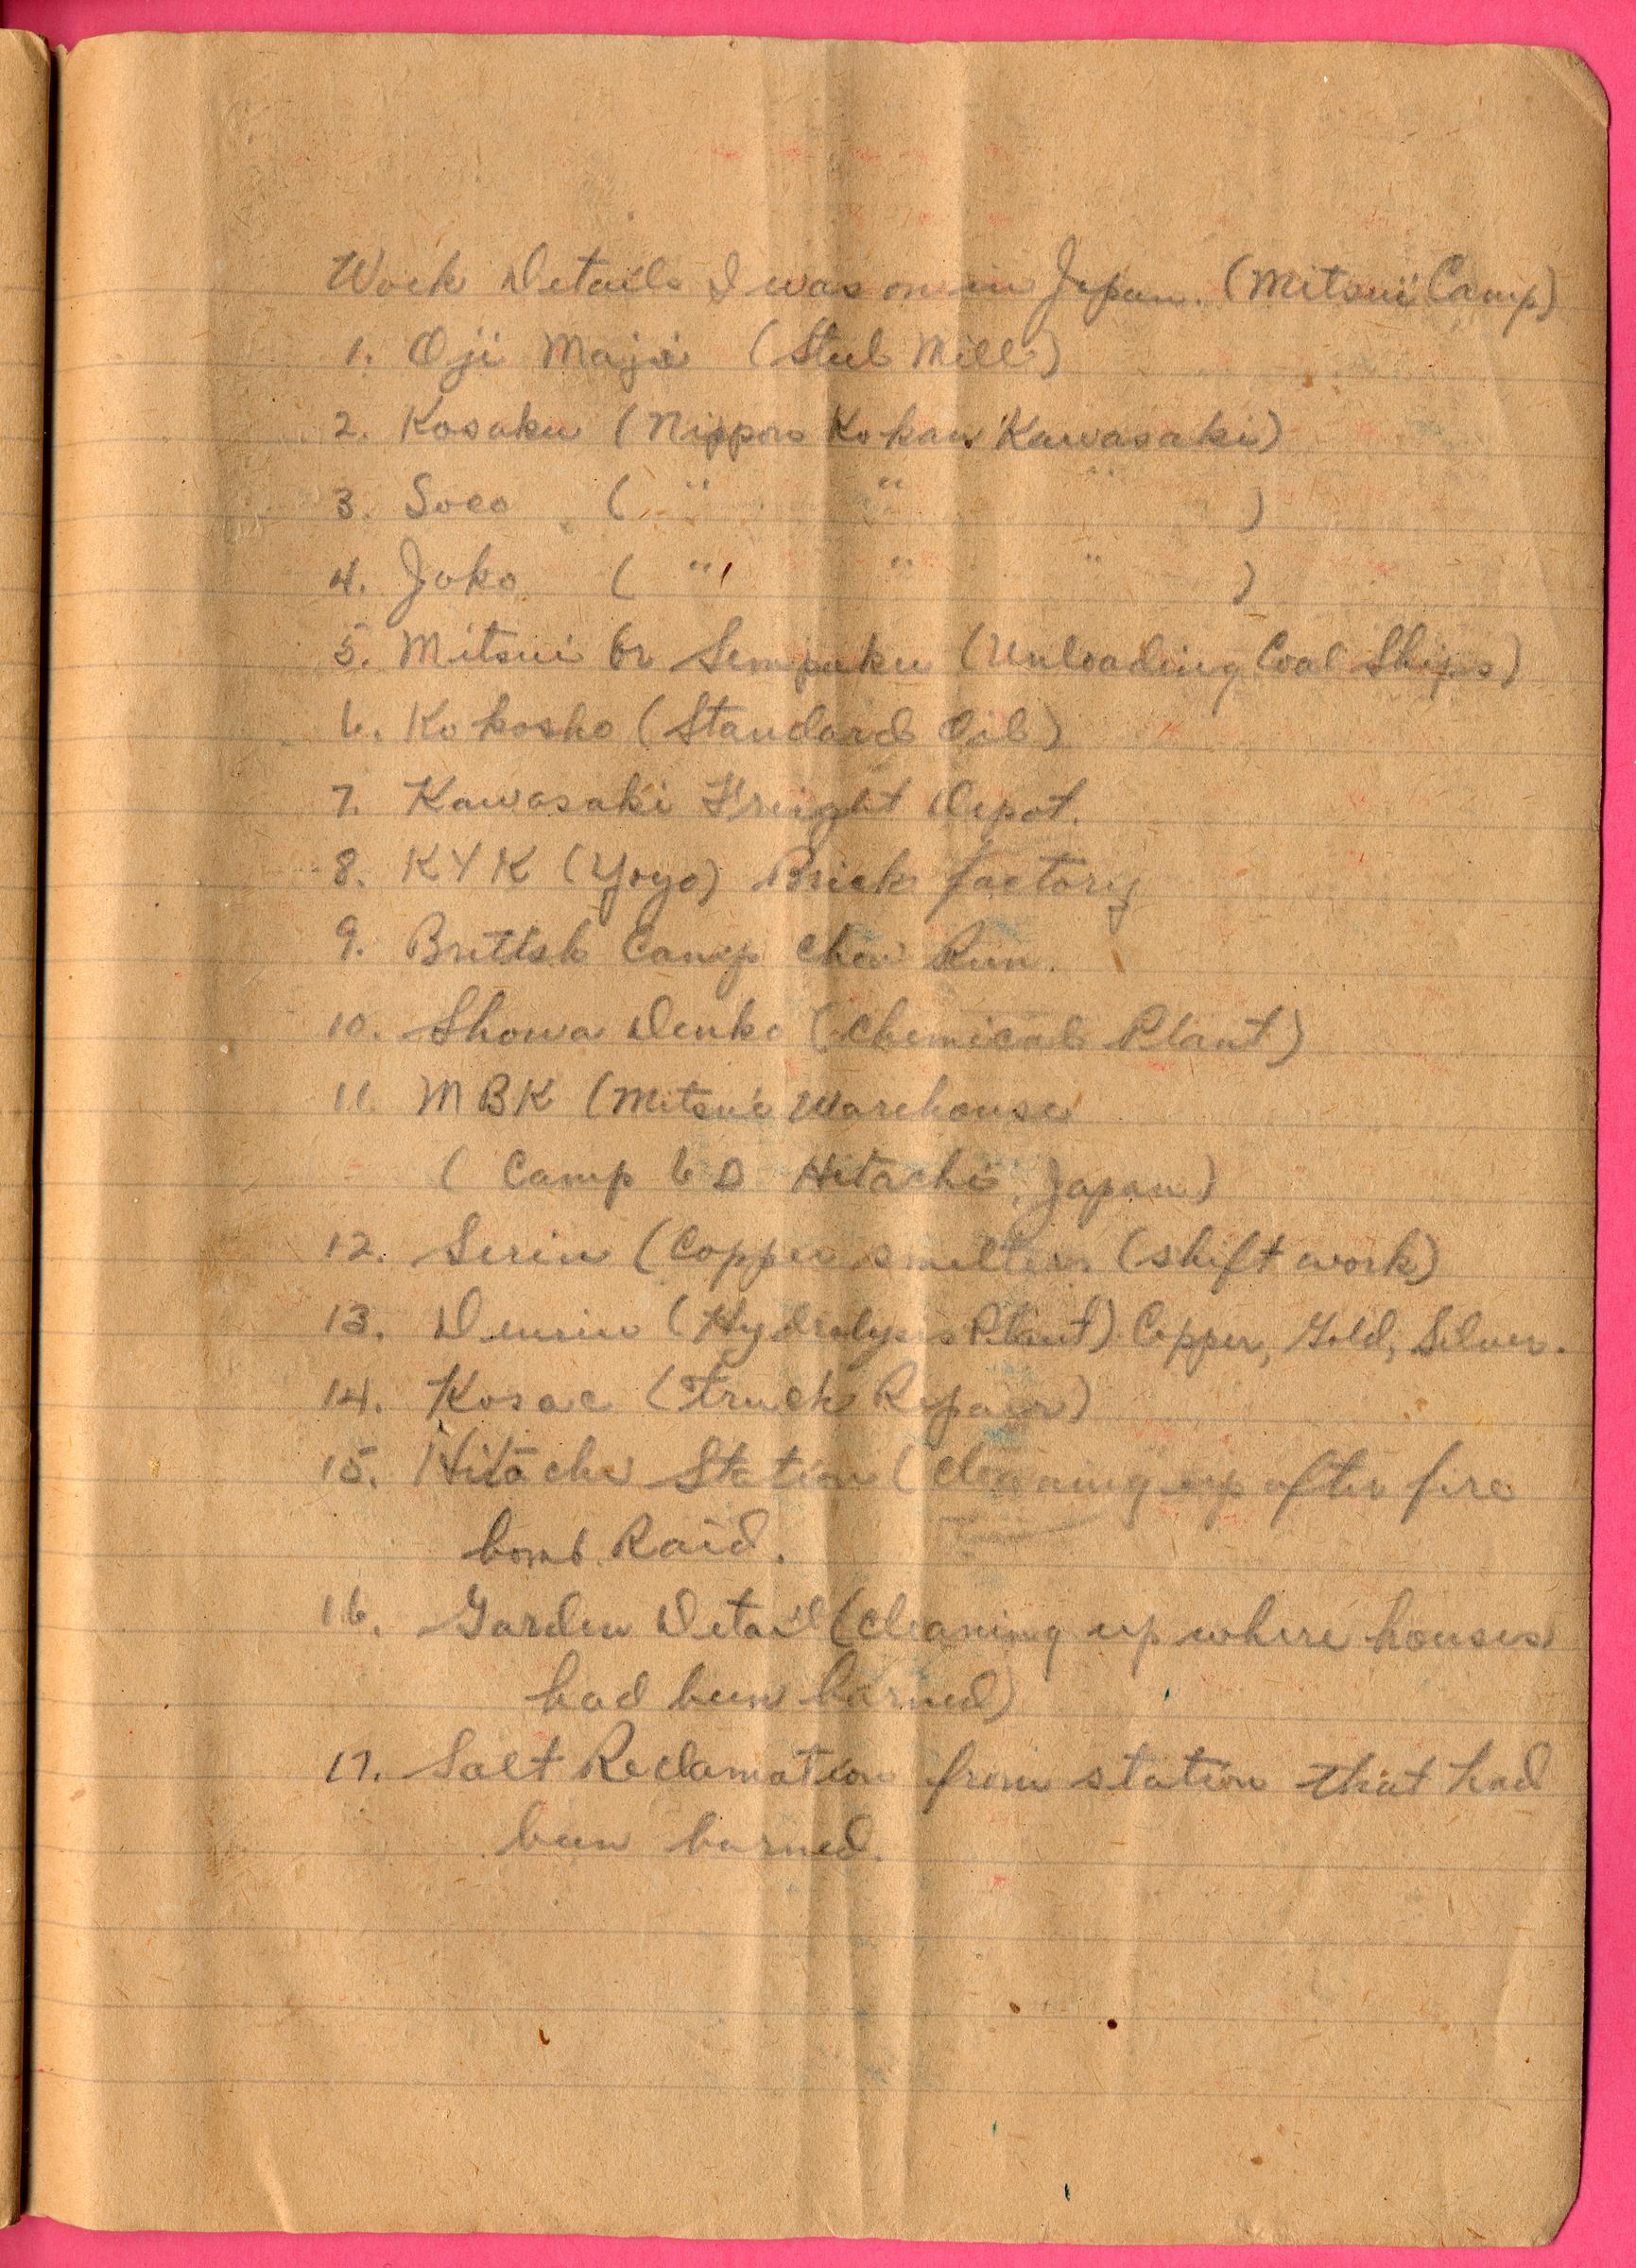 Work Details I was on in Japan. (Mitsui Camp)
1. Oji Maji (Steel Mill)
2. Kosaku (Nippon Ko kan Kawasaki)
3. Soco ( " " " )
4. Joko ( " " " )
5. Mitsui or Sempaku (Unloading Coal Ships)
6. Ko kosho (Standard Oil)
7. Kawasaki Freight Depot.
8. KYK (Yogo) Brick factory
9. British Camp Chow Run.
10. Showa Denko (Chemical Plant)
11. MBK (Mitsui Warehouse
( Camp 6 D Hitachi, Japan)
12. Serin (Copper smelter (shift work)
13. Densin (Hydrolysis Plant) Copper, Gold, Silver.
14. Kosac (Truck Repair)
15. Hitachi Station (cleaning up after fire
bomb Raid.
16. Garden Detail (cleaning up where houses
had been burned)
17. Salt Reclamation from station that had
been burned.